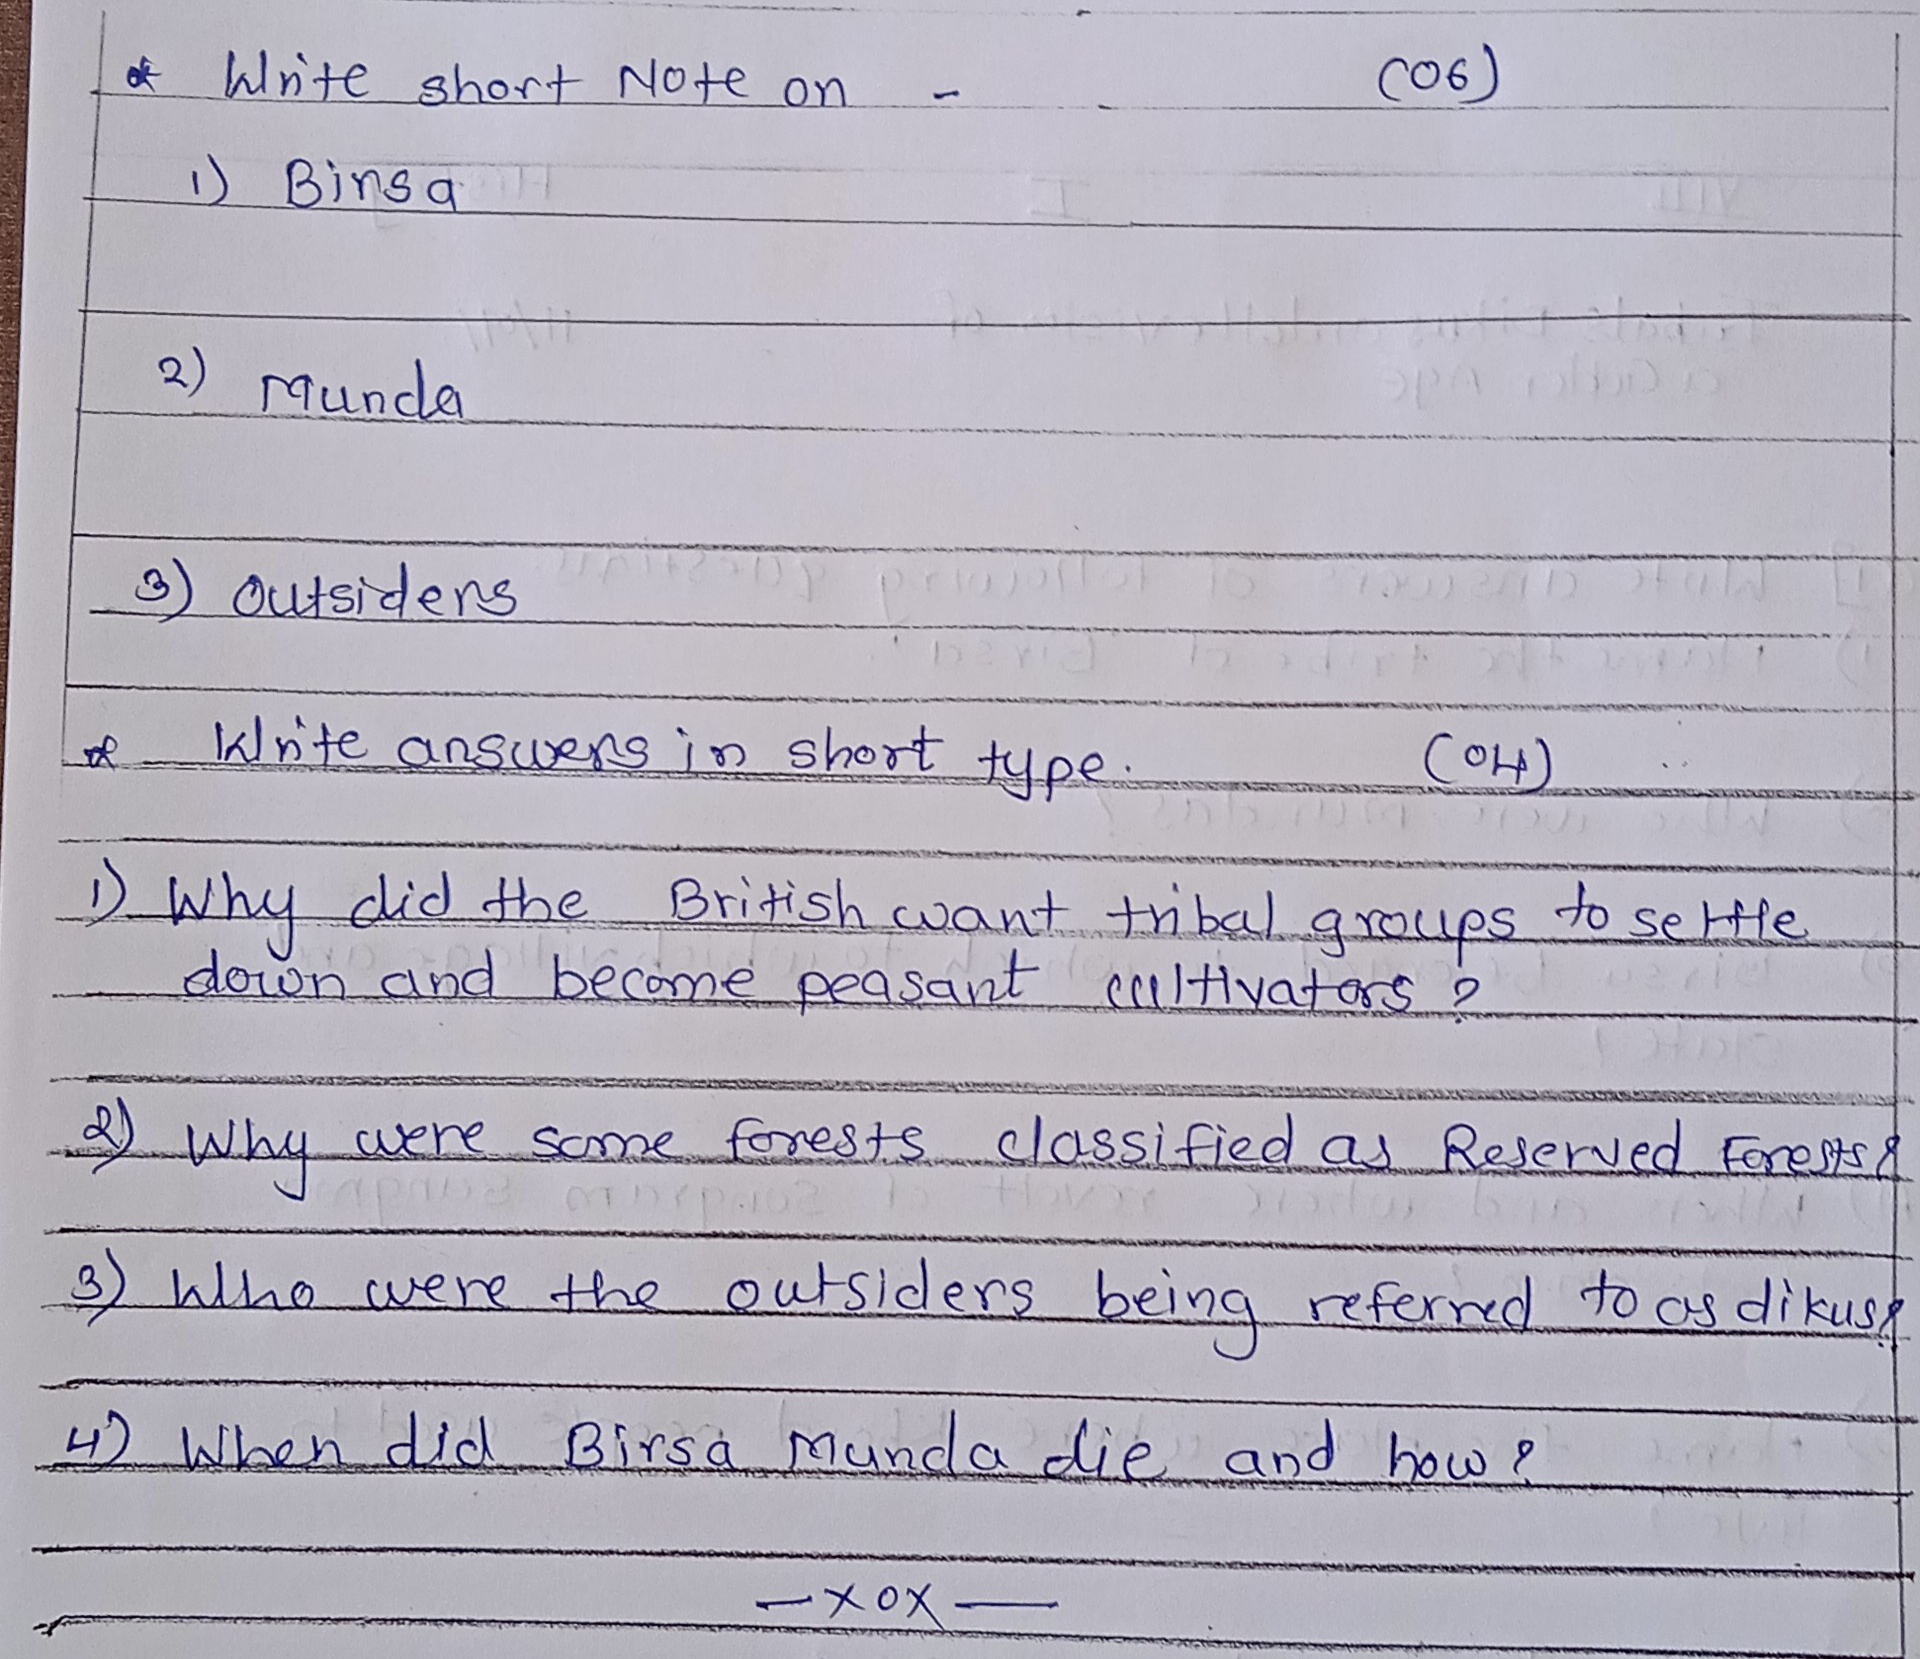 * Write short Note on - (06)
1) Birsa
2) Munda
3) Outsiders
* Write answers in short type. (04)
1) Why did the British want tribal groups to settle
down and become peasant cultivators ?
2) Why were some forests classified as Reserved Forests?
3) Who were the outsiders being referred to as dikus?
4) When did Birsa Munda die and how?
— x o x —